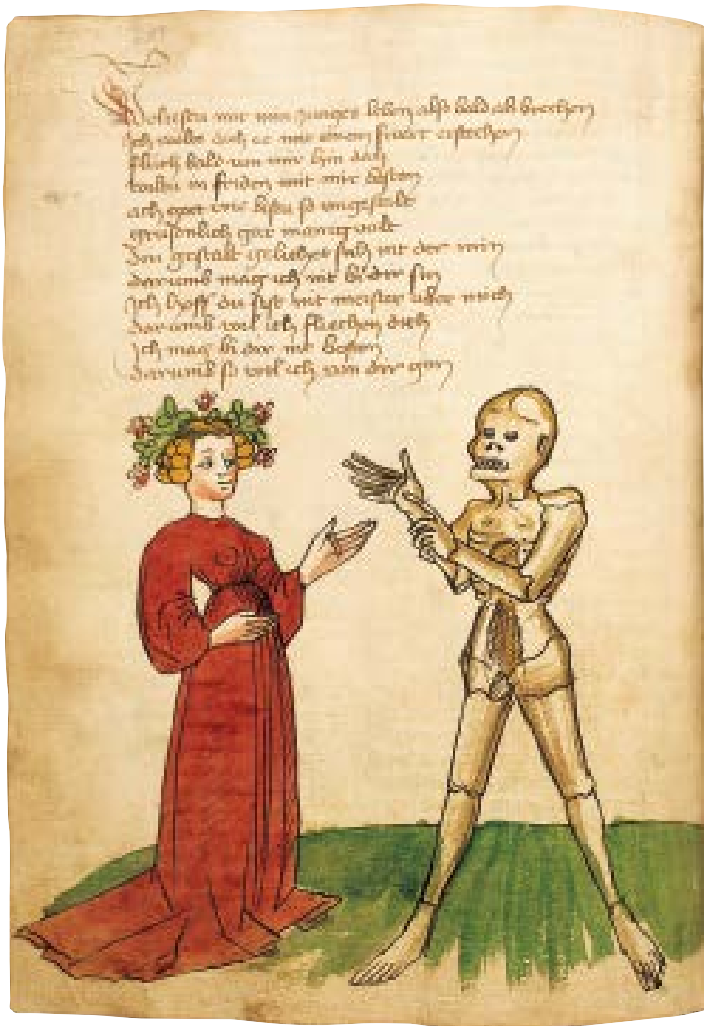 Woltestu mir min junges leben also bald ab brechen
Ich wolt dich ee mit einem swert erstechen
flüch bald von mir hin dan
woltu in friden mit mir beston
ach got wie bistu so ungestalt
grüsenlich gar manigvalt
Din gestalt gelichet sich nit der min
darumb mag ich nit bi dir sin
Ich hoff du syst nit meister uber mich
darumb wil ich fliechen dich
Ich mag bi dir nit beston
darumb so wil ich von dir gon